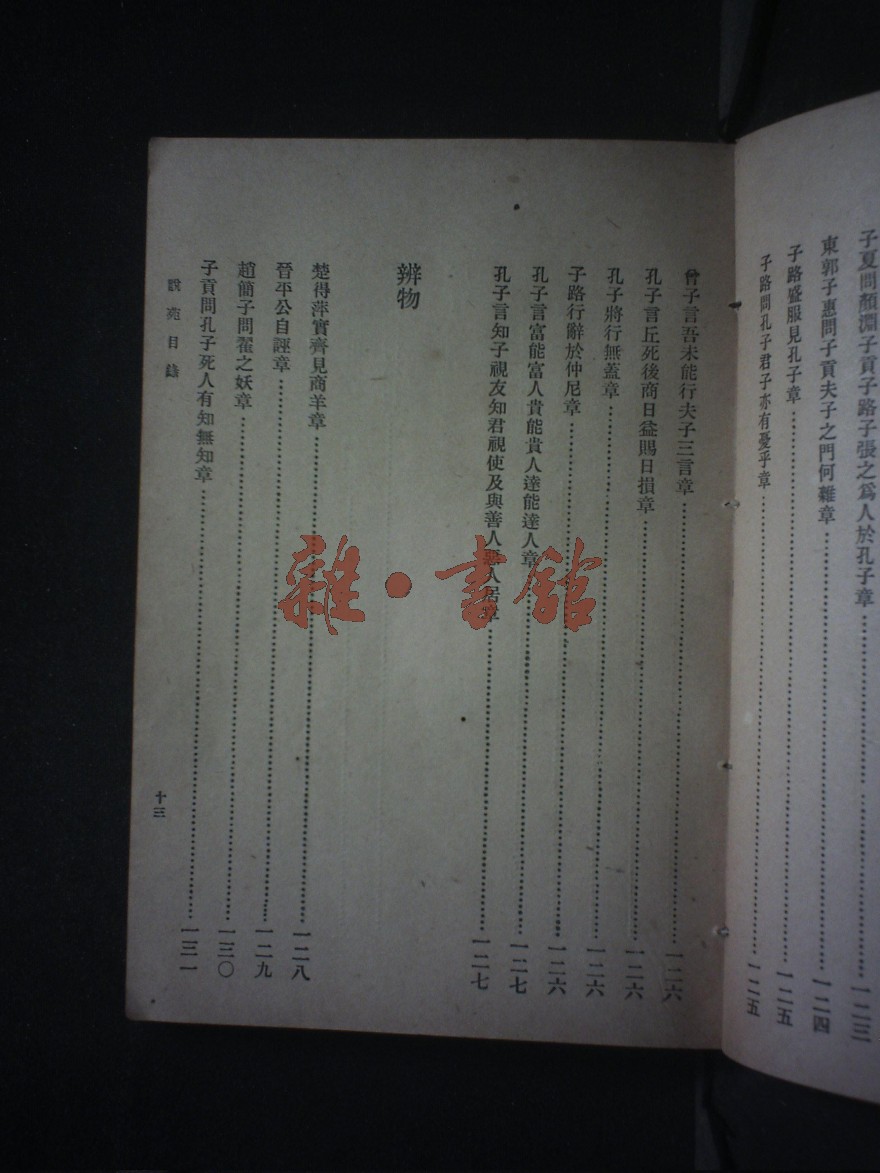 子夏問顏淵子貢子路子張之爲人於孔子章……一二三
東郭子惠問子貢夫子之門何雜章……一二四
子路盛服見孔子章……一二五
子路問孔子君子亦有憂乎章……一二五
曾子言吾未能行夫子三言章……一二六
孔子言丘死後商日益賜日損章……一二六
孔子將行無蓋章……一二六
子路行辭於仲尼章……一二六
孔子言富能富人貴能貴人達能達人章……一二七
孔子言知子視友知君視使及與善人惡人居章……一二七
辨物
楚得萍實齊見商羊章……一二八
晉平公自誣章……一二九
趙簡子問翟之妖章……一三〇
子貢問孔子死人有知無知章……一三一
說苑目錄
十三
雜·書館